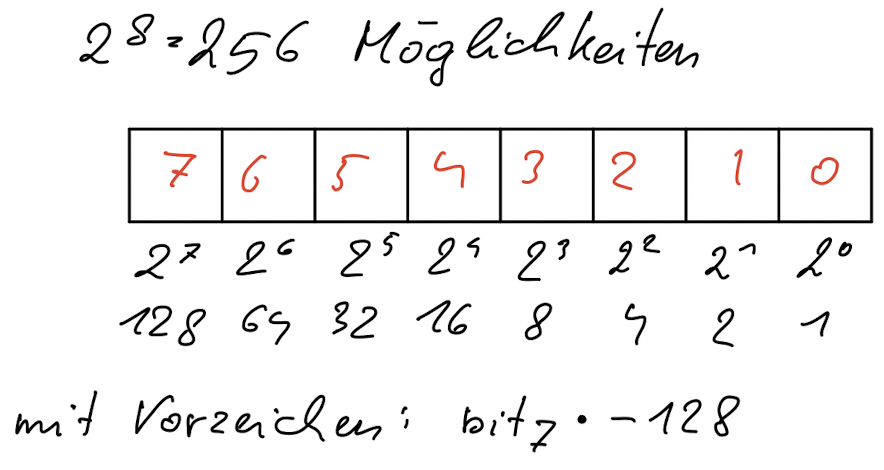 2⁸ = 256 Möglichkeiten
7 6 5 4 3 2 1 0
2⁷ 2⁶ 2⁵ 2⁴ 2³ 2² 2¹ 2⁰
128 64 32 16 8 4 2 1
mit Vorzeichen: bit₇ · -128